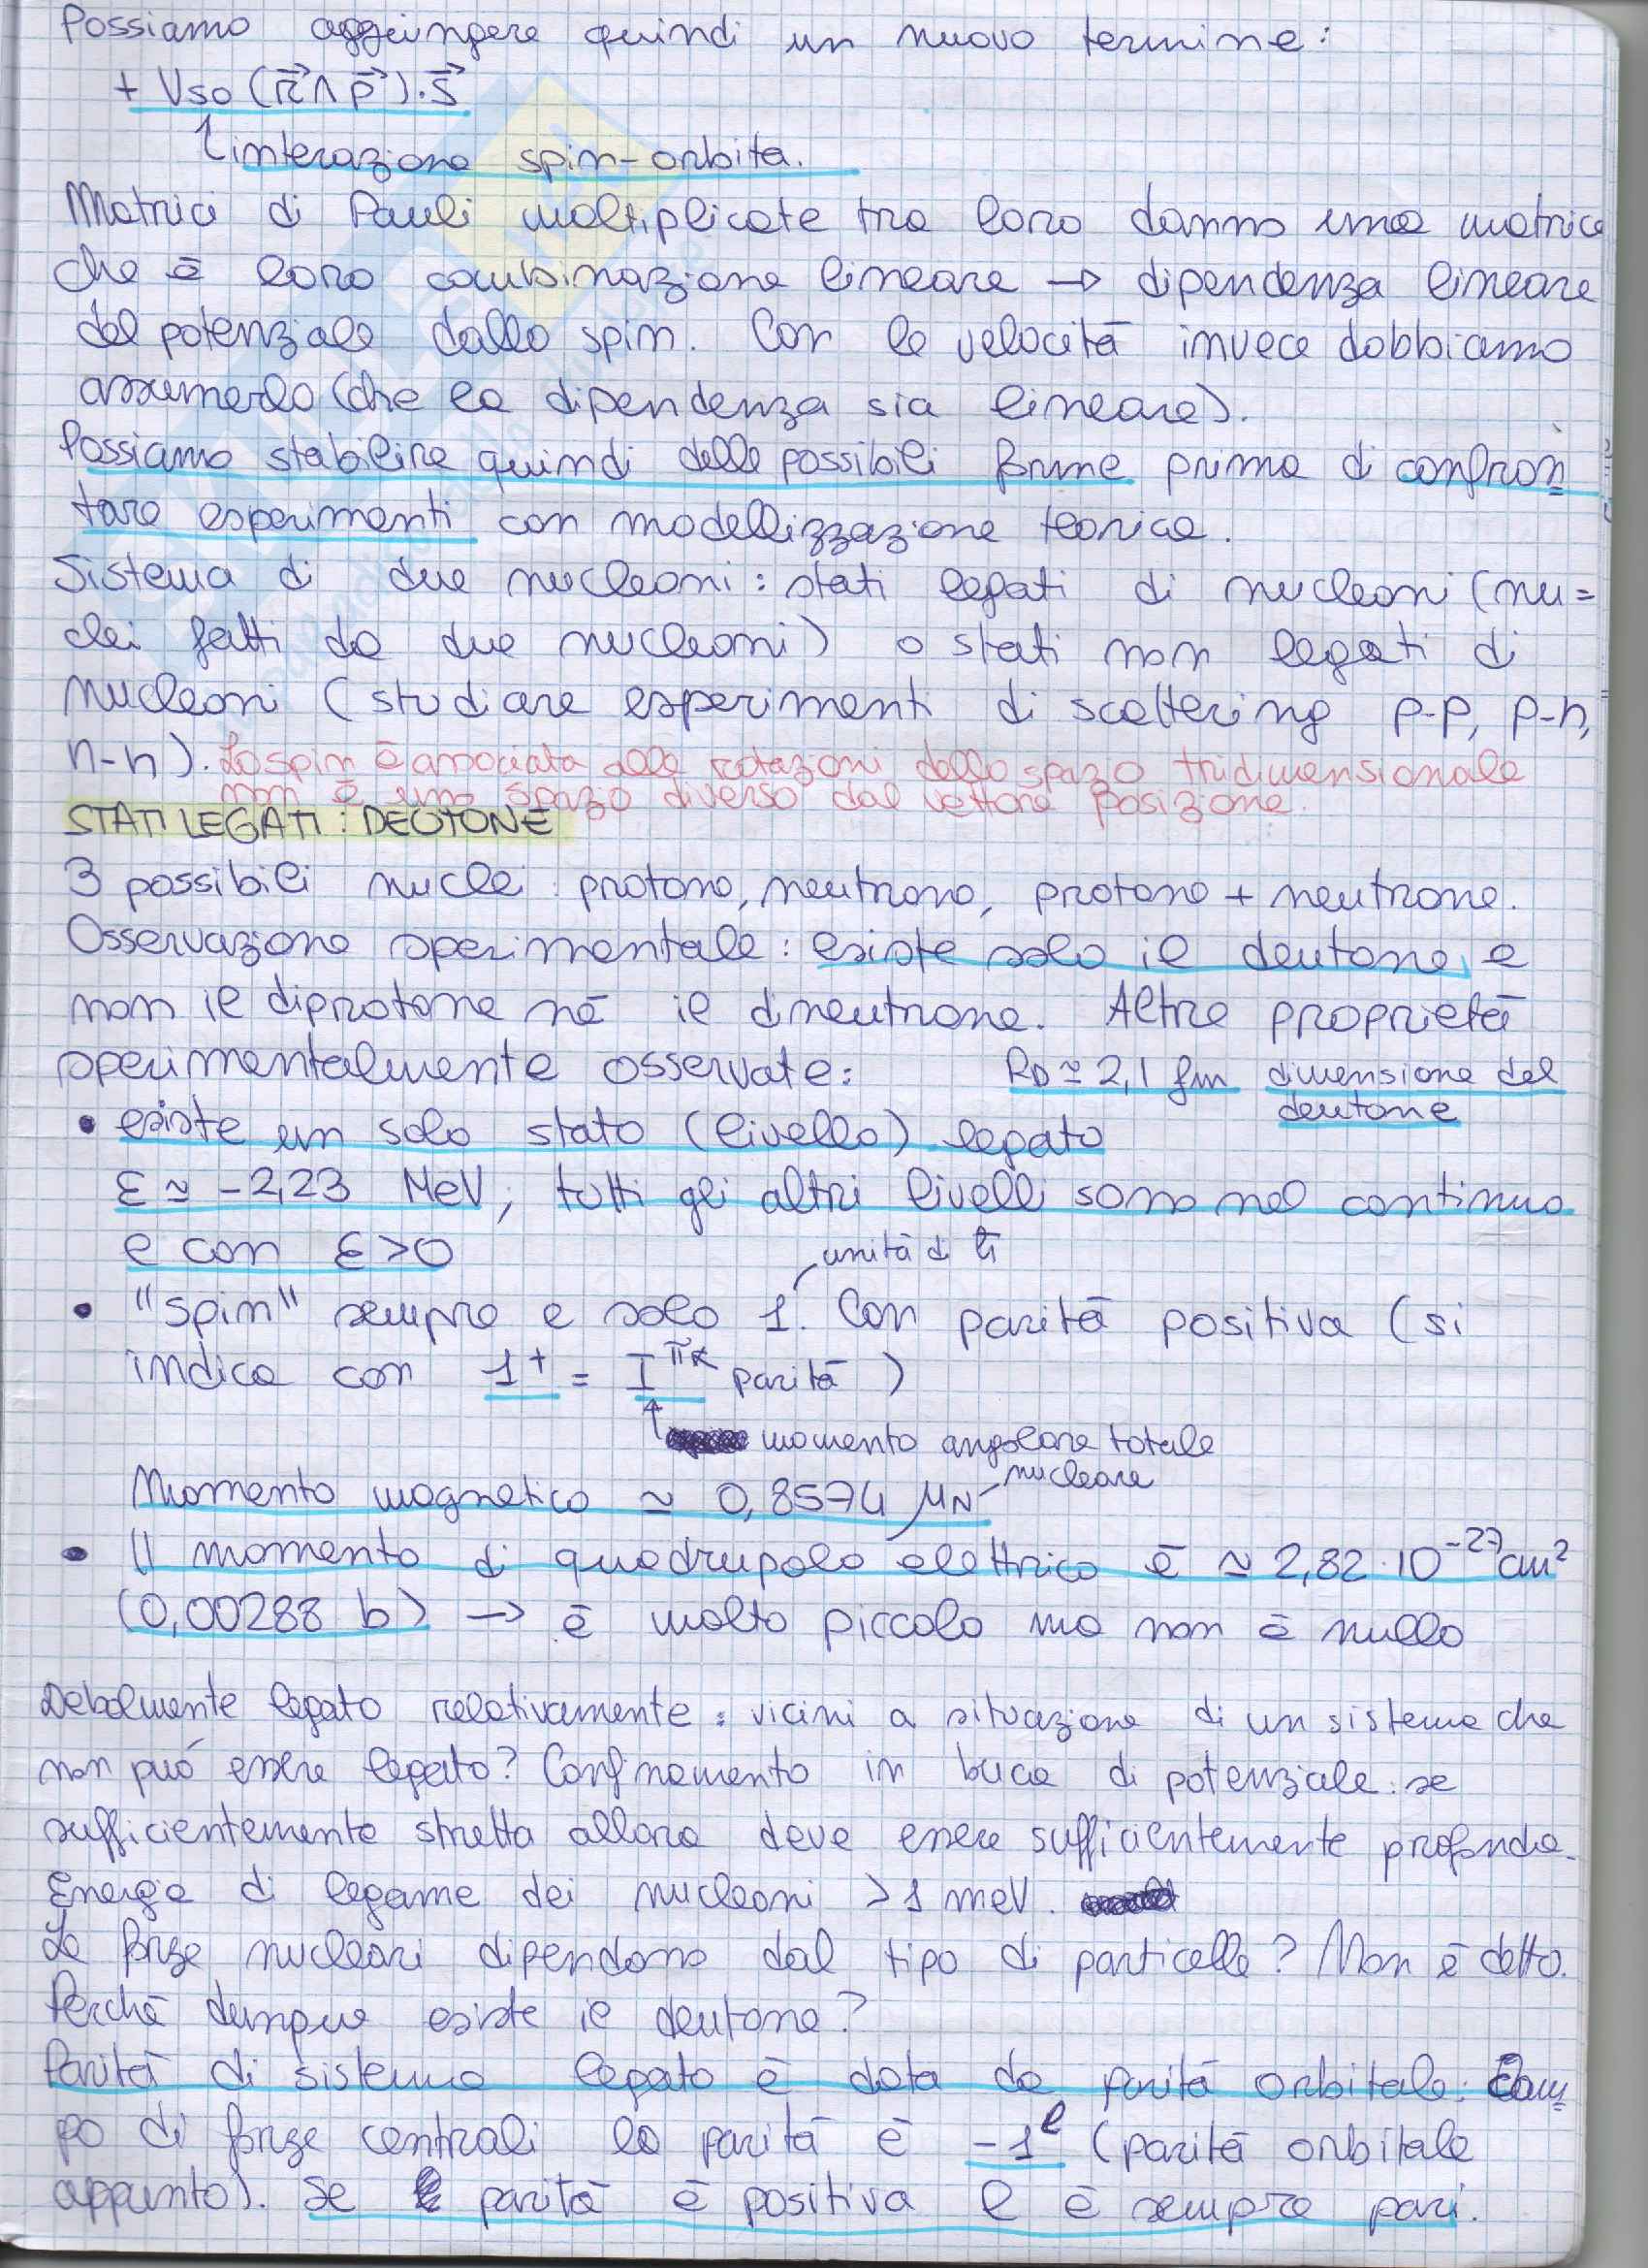 Possiamo aggiungere quindi un nuovo termine:
+ Vso (r⃗ ∧ p⃗)·s⃗
interazione spin-orbita.
Matrici di Pauli moltiplicate tra loro danno una matrice
che è loro combinazione lineare → dipendenza lineare
del potenziale dallo spin. Con le velocità invece dobbiamo
assumerlo (che la dipendenza sia lineare).
Possiamo stabilire quindi delle possibili forme prima di confron
tare esperimenti con modellizzazione teorica.
Sistema di due nucleoni: stati legati di nucleoni (nu=
clei fatti da due nucleoni) o stati non legati di
nucleoni (studiare esperimenti di scattering p-p, p-n,
n-n). Lo spin è associata alle rotazioni dello spazio tridimensionale
non è uno spazio diverso dal vettore posizione.
STATI LEGATI: DEUTONE
3 possibili nuclei: protone, neutrone, protone + neutrone.
Osservazione sperimentale: esiste solo il deutone, e
non il diprotone né il dineutrone. Altre proprietà
sperimentalmente osservate: RD ≃ 2,1 fm dimensione del
deutone
• esiste un solo stato (livello) legato
ε ≃ -2,23 MeV; tutti gli altri livelli sono nel continuo
e con ε>0
unità di ħ
• "spin" sempre e solo 1. Con parità positiva (si
indica con 1⁺ = I^π parità)
momento angolare totale
nucleare
Momento magnetico ≃ 0,8574 μN
• Il momento di quadrupolo elettrico è ≃ 2,82·10⁻²⁷cm²
(0,00288 b) → è molto piccolo ma non è nullo
Debolmente legato relativamente: vicini a situazione di un sistema che
non può essere legato? Confinamento in buca di potenziale: se
sufficientemente stretta allora deve essere sufficientemente profonda.
Energia di legame dei nucleoni >1 meV.
Le forze nucleari dipendono dal tipo di particelle? Non è detto.
Perché dunque esiste il deutone?
Parità di sistema legato è data da parità orbitale. Cam
po di forze centrali la parità è -1^l (parità orbitale
appunto). Se parità è positiva l è sempre pari.